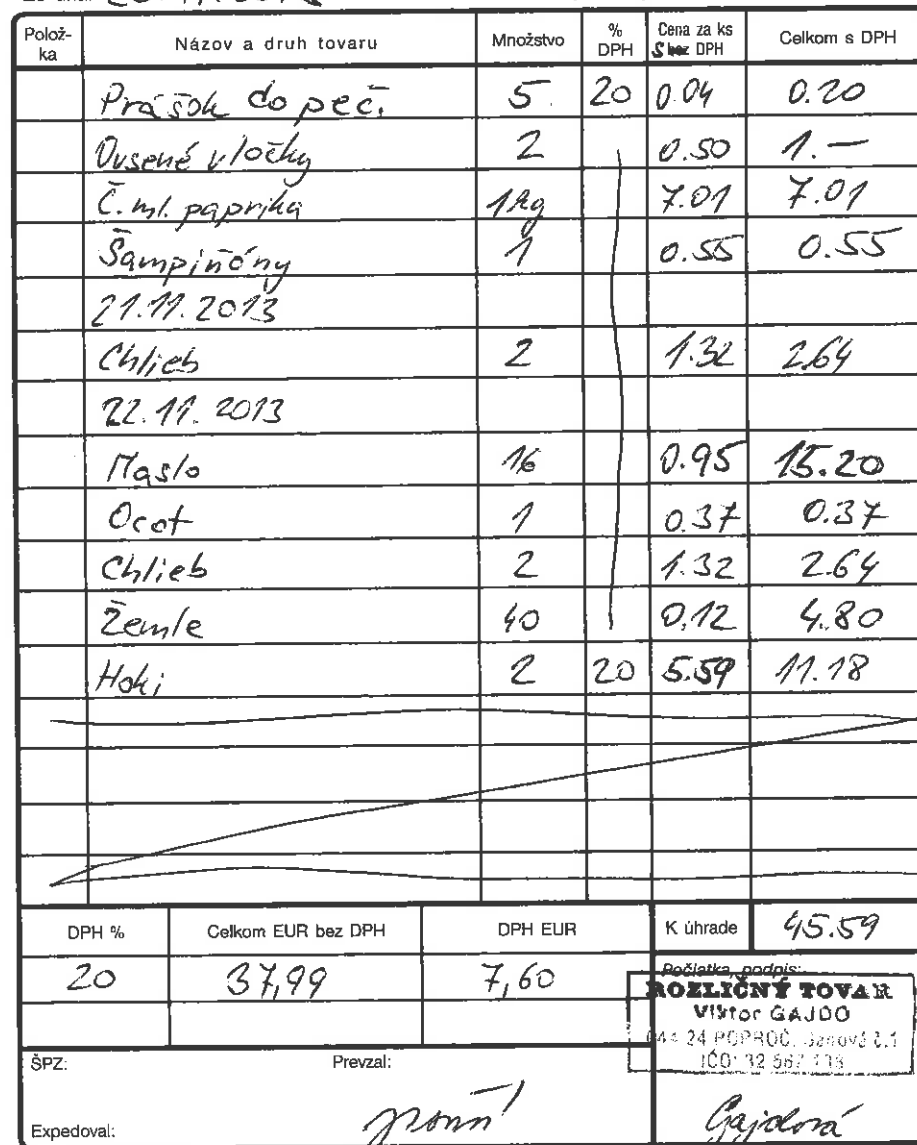 Polož-ka Názov a druh tovaru Množstvo % DPH Cena za ks S bez DPH Celkom s DPH
Prášok do peč. 5 20 0.04 0.20
Ovsené vločky 2 0.50 1.—
Č. ml. paprika 1kg 7.01 7.01
Šampiňóny 1 0.55 0.55
21.11.2013
Chlieb 2 1.32 2.64
22.11.2013
Maslo 16 0.95 15.20
Ocot 1 0.37 0.37
Chlieb 2 1.32 2.64
Žemle 40 0,12 4.80
Hoki 2 20 5.59 11.18
DPH % Celkom EUR bez DPH DPH EUR K úhrade 45.59
20 37,99 7,60
Pečiatka, podpis:
ROZLIČNÝ TOVAR
Viktor GAJDO
044 24 POPROČ,
IČO: 32
ŠPZ: Prevzal:
Expedoval: Gajdová